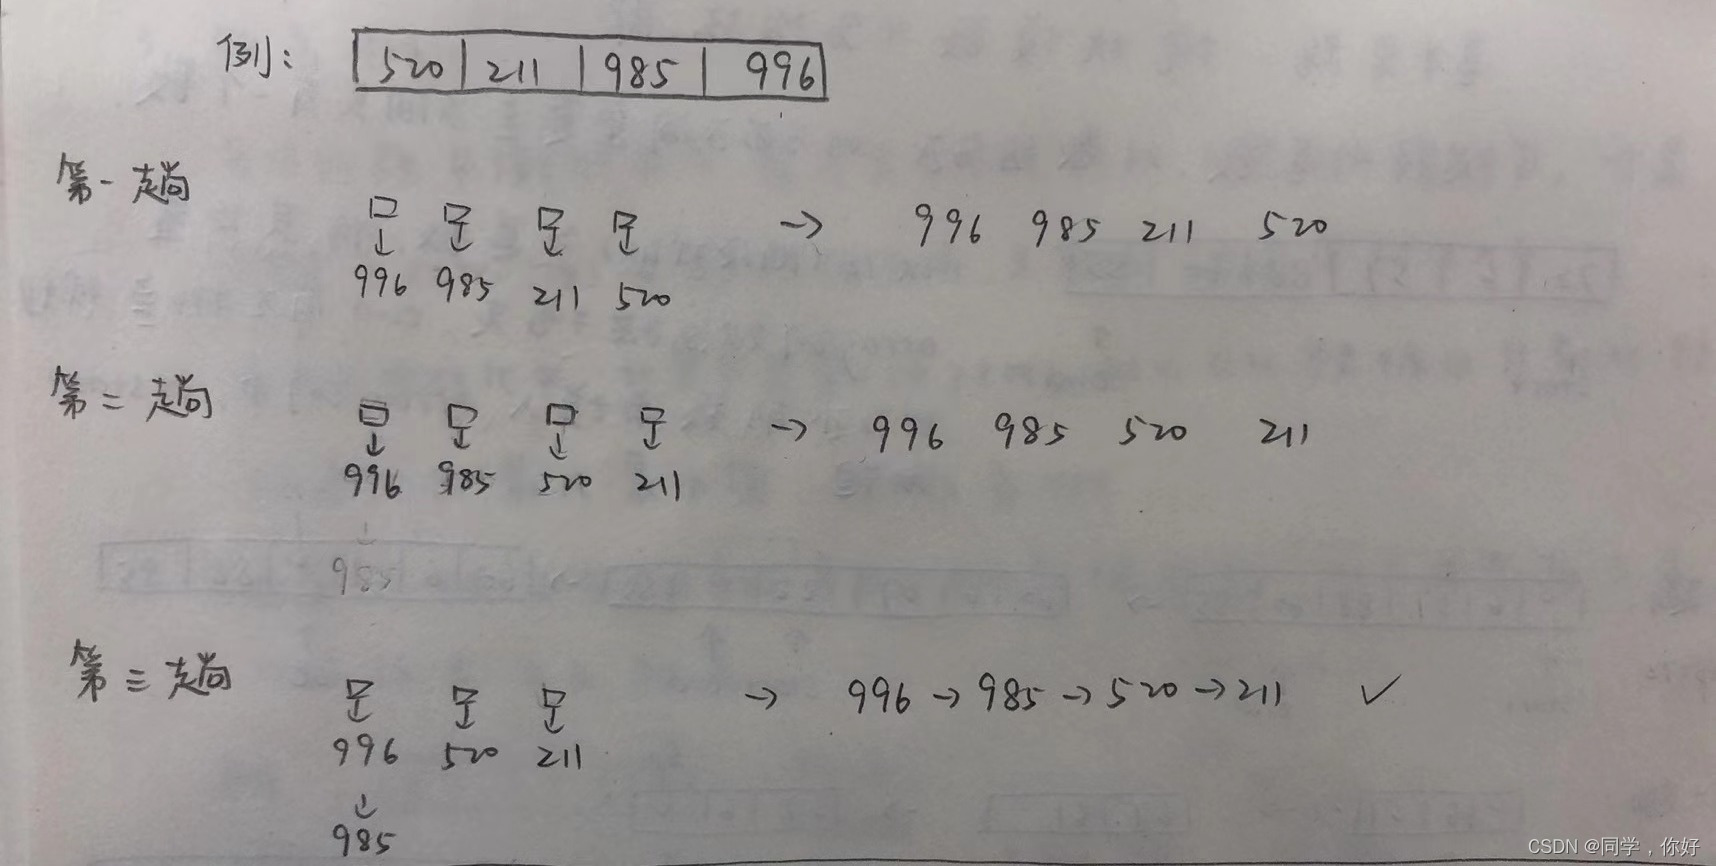 例: 520 211 985 996
第一趟
→ 996 985 211 520
996 985 211 520
第二趟
→ 996 985 520 211
996 985 520 211
985
第三趟
→ 996→985→520→211 ✓
996 520 211
985
CSDN @同学，你好